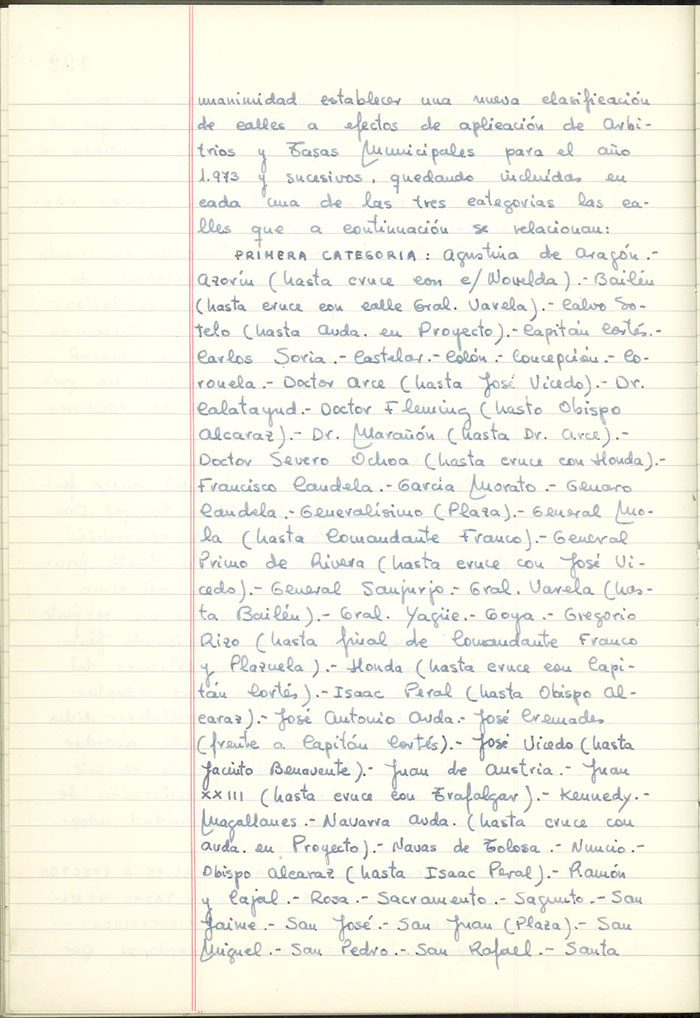 unanimidad establecer una nueva clasificación
de calles a efectos de aplicación de Arbi-
trios y Tasas Municipales para el año
1.973 y sucesivos, quedando incluidas en
cada una de las tres categorías las ca-
lles que a continuación se relacionan:
PRIMERA CATEGORIA: Agustina de Aragón.-
Azorín (hasta cruce con c/ Novelda).- Bailén
(hasta cruce con calle Gral. Varela).- Calvo So-
telo (hasta Avda. en Proyecto).- Capitán Cortés.-
Carlos Soria.- Castelar.- Colón.- Concepción.- Co-
ronela.- Doctor Arce (hasta José Vicedo).- Dr.
Calatayud.- Doctor Fleming (hasto Obispo
Alcaraz).- Dr. Marañón (hasta Dr. Arce).-
Doctor Severo Ochoa (hasta cruce con Honda).-
Francisco Candela.- García Morato.- Genaro
Candela.- Generalísimo (Plaza).- General Mo-
la (hasta Comandante Franco).- General
Primo de Rivera (hasta cruce con José Vi-
cedo).- General Sanjurjo.- Gral. Varela (has-
ta Bailén).- Gral. Yagüe.- Goya.- Gregorio
Rizo (hasta final de Comandante Franco
y Plazuela).- Honda (hasta cruce con Capi-
tán Cortés).- Isaac Peral (hasta Obispo Al-
caraz).- José Antonio Avda.- José Cremades
(frente a Capitán Cortés).- José Vicedo (hasta
Jacinto Benavente).- Juan de Austria.- Juan
XXIII (hasta cruce con Trafalgar).- Kennedy.-
Magallanes.- Navarra Avda. (hasta cruce con
Avda. en Proyecto).- Navas de Tolosa.- Nuncio.-
Obispo Alcaraz (hasta Isaac Peral).- Ramón
y Cajal.- Rosa.- Sacramento.- Sagunto.- San
Jaime.- San José.- San Juan (Plaza).- San
Miguel.- San Pedro.- San Rafael.- Santa